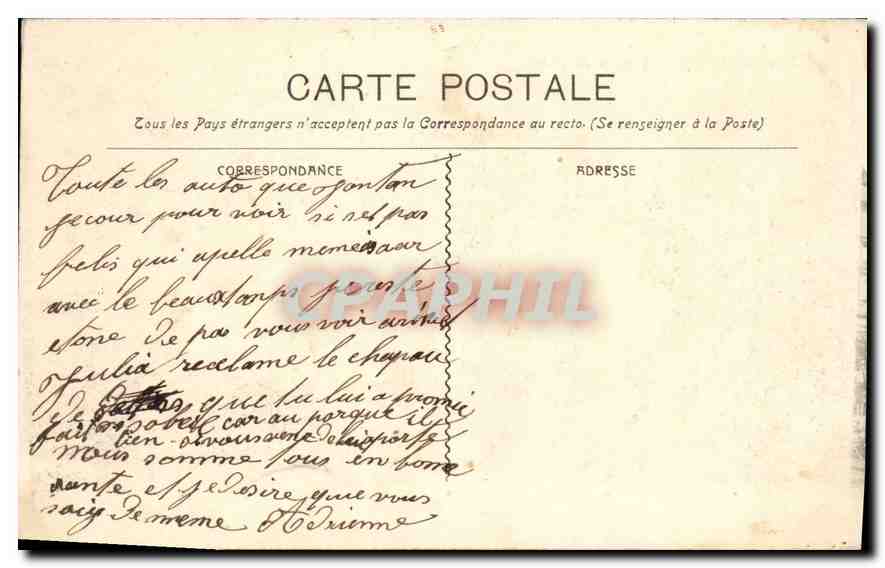 CARTE POSTALE
Tous les Pays étrangers n'acceptent pas la Correspondance au recto. (Se renseigner à la Poste)
CORRESPONDANCE
ADRESSE
Toute les auto que jontan
je cour pour voir si set pas
felis qui apelle meme
avec le beaux tanps je reste
etone de pas vous voir arivé
Julia reclame le chapau
de que tu lui a promi
fait car au
bien si vous vene
nous somme tous en bonne
sante et je desire que vous
soiy de meme Adrienne
CPAPHIL